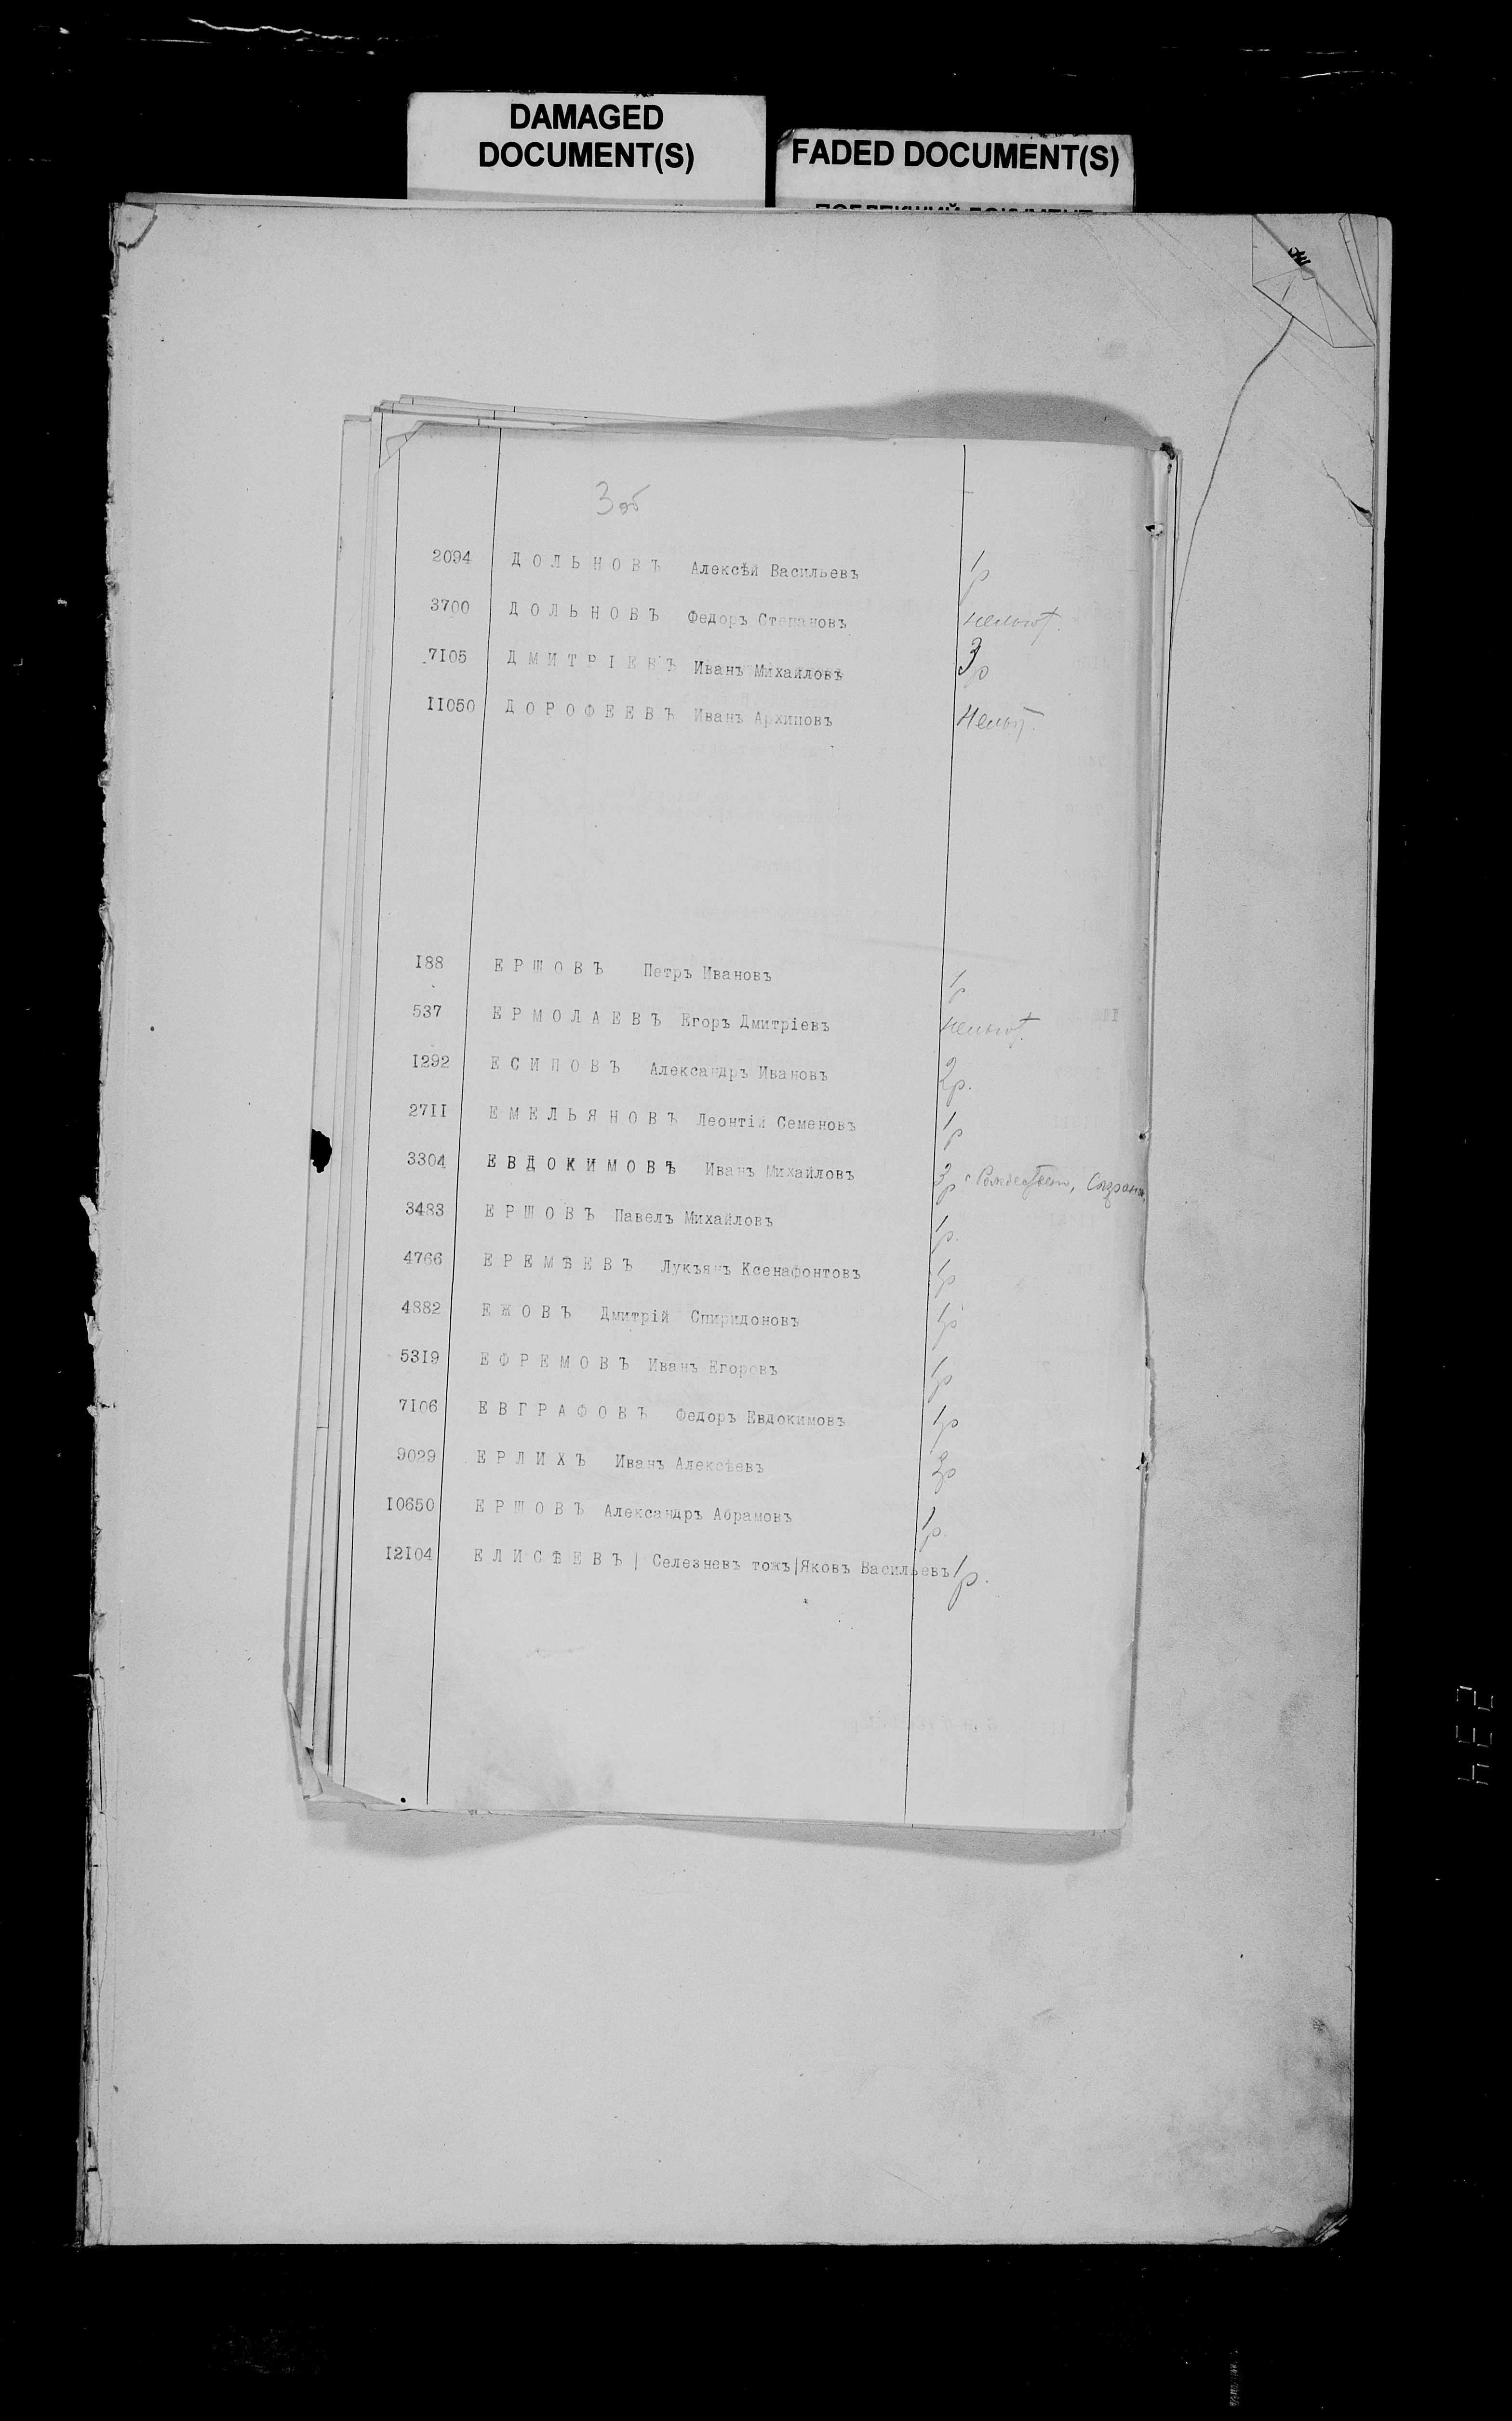 DAMAGED
DOCUMENT(S)
FADED DOCUMENT(S)
3 об
2094 ДОЛЬНОВЪ Алексѣй Васильевъ 1р
3700 ДОЛЬНОВЪ Федоръ Степановъ
7I05 ДМИТРІЕВЪ Иванъ Михайловъ 3р
II050 ДОРОФЕЕВЪ Иванъ Архиповъ
I88 ЕРШОВЪ Петръ Ивановъ 1р
537 ЕРМОЛАЕВЪ Егоръ Дмитріевъ
I292 ЕСИПОВЪ Александръ Ивановъ 2р.
27II ЕМЕЛЬЯНОВЪ Леонтій Семеновъ 1р
3304 ЕВДОКИМОВЪ Иванъ Михайловъ 3р
3483 ЕРШОВЪ Павелъ Михайловъ 1р.
4766 ЕРЕМѢЕВЪ Лукъянъ Ксенафонтовъ 1р
4882 ЕЖОВЪ Дмитрій Спиридоновъ 1р
53I9 ЕФРЕМОВЪ Иванъ Егоровъ 1р
7I06 ЕВГРАФОВЪ Федоръ Евдокимовъ 1р
9029 ЕРЛИХЪ Иванъ Алексѣевъ
I0650 ЕРШОВЪ Александръ Абрамовъ 1р.
I2I04 ЕЛИСѢЕВЪ | Селезневъ тожъ|Яковъ Васильевъ 1р.
234